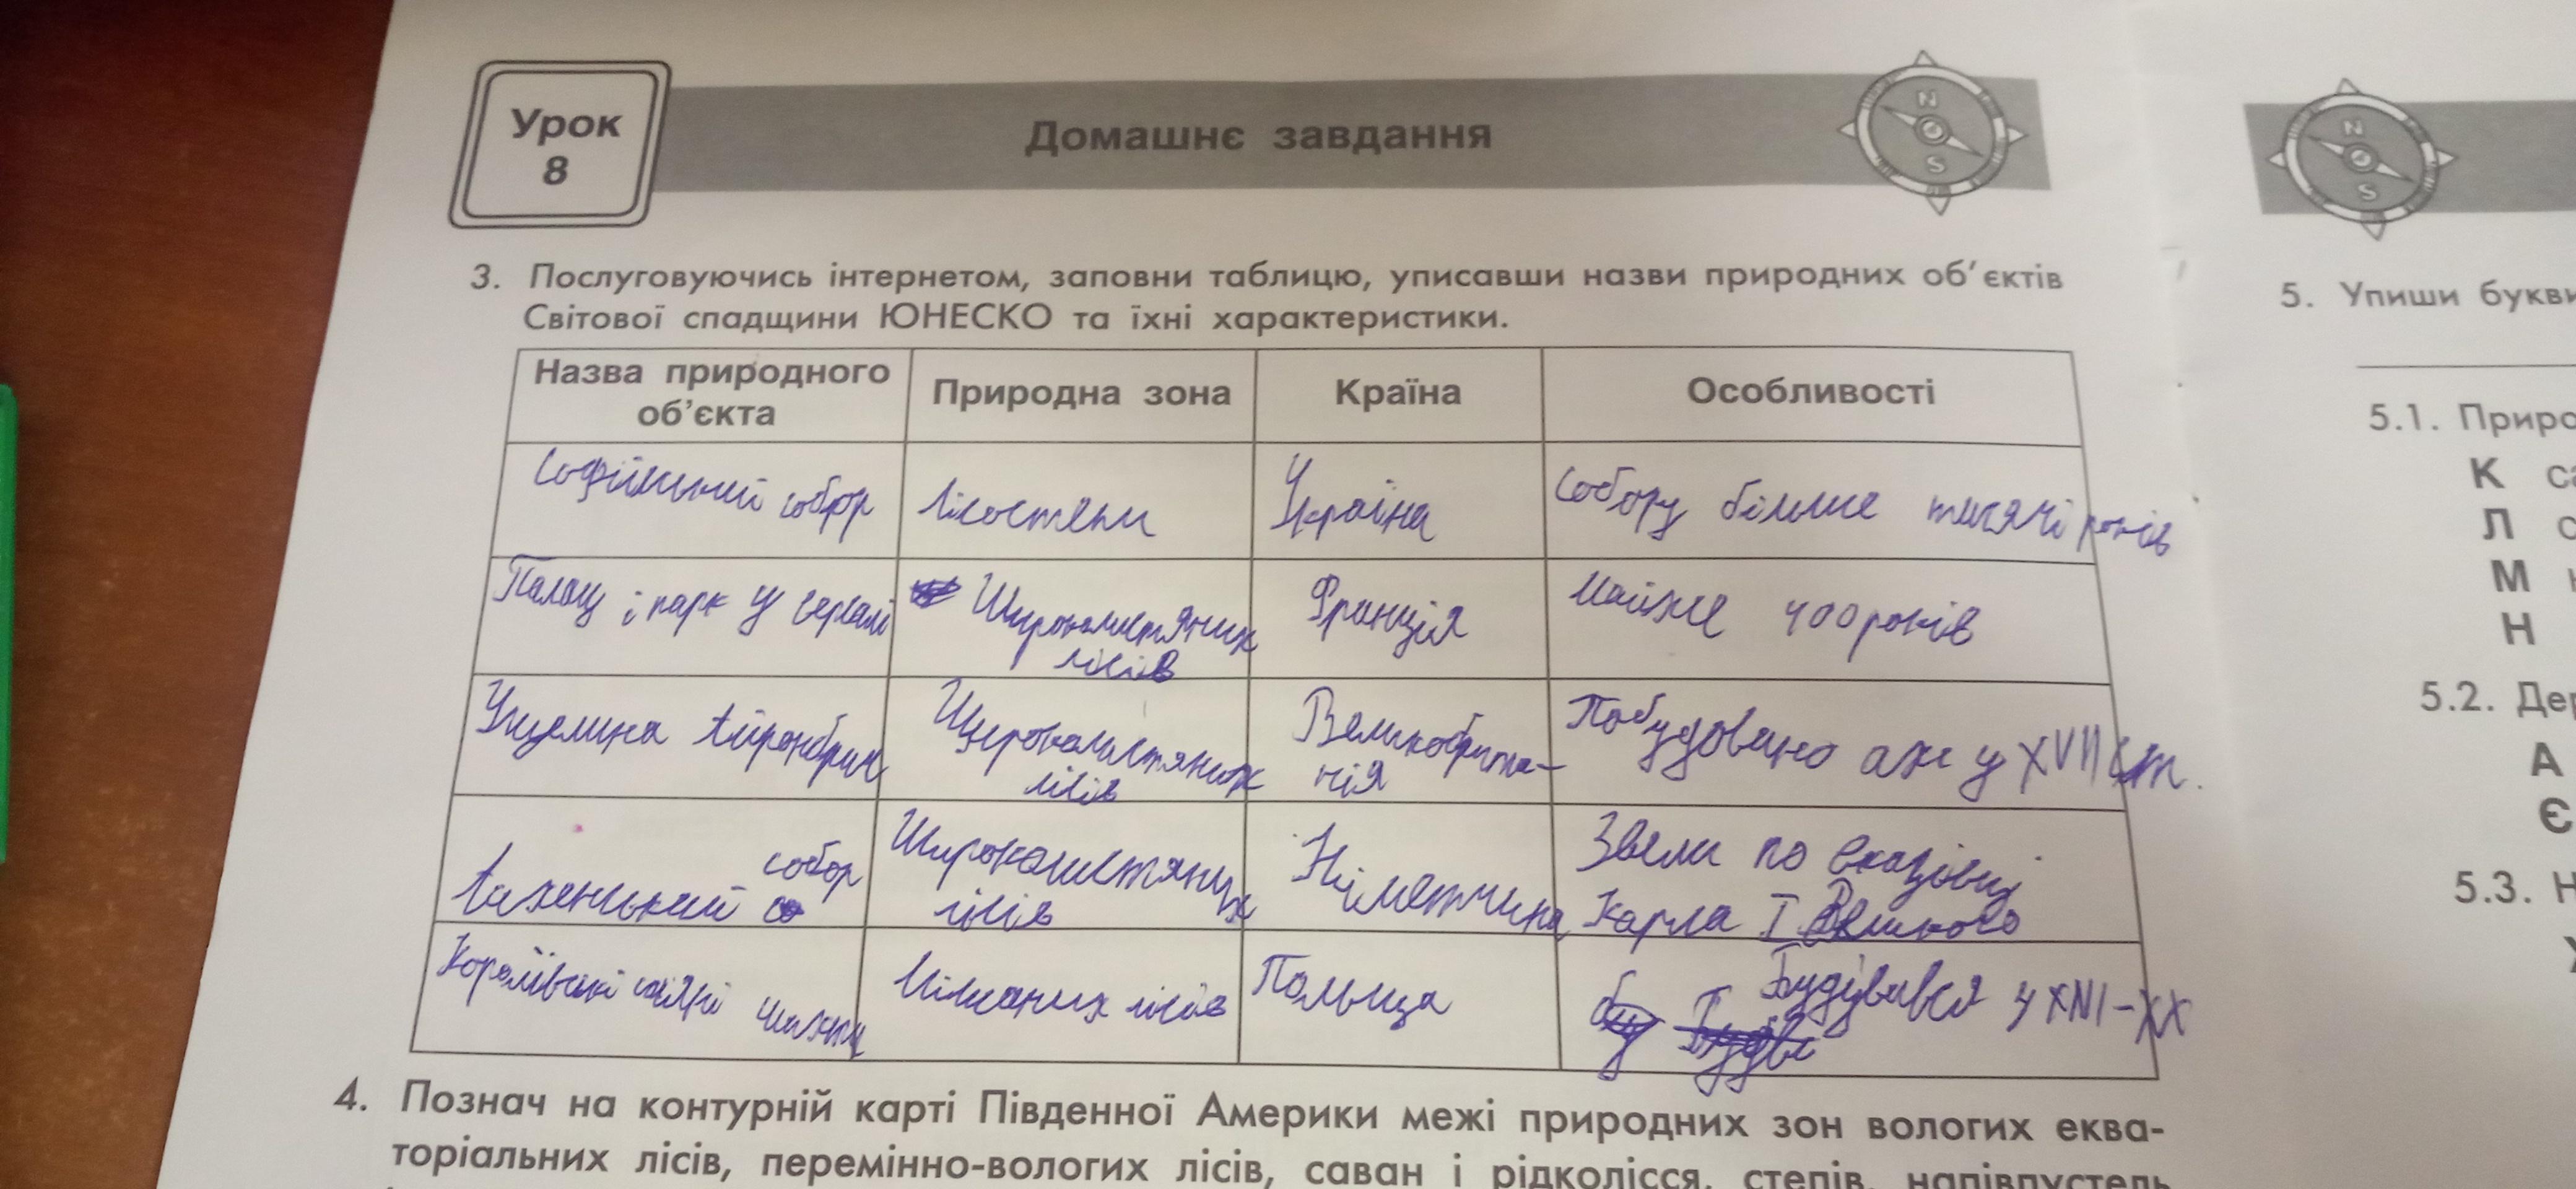 Урок
8
Домашнє завдання
N
S
N
S
3. Послуговуючись інтернетом, заповни таблицю, уписавши назви природних об'єктів
Світової спадщини ЮНЕСКО та їхні характеристики.
Назва природного
об'єкта
Природна зона
Країна
Особливості
Софійський собор
лісостепи
Україна
Собору більше тисячі років
Палац і парк у
Широколистяних
лісів
Франція
Майже 400 років
Ущелина Айронбридж
Широколистяних
лісів
Великобрита-
нія
Побудовано аж у XVII ст.
собор
Аахенський
Широколистяних
лісів
Німеччина
Звели по вказівці
Карла I Великого
Королівські соляні шахти
Мішаних лісів
Польща
Будувався у XIII-XX
4. Познач на контурній карті Південної Америки межі природних зон вологих еква-
торіальних лісів, перемінно-вологих лісів, саван і рідколісся, степів, напівпустель
5. Упиши
5.1.
К
Л
М
Н
5.2.
А
Є
5.3.